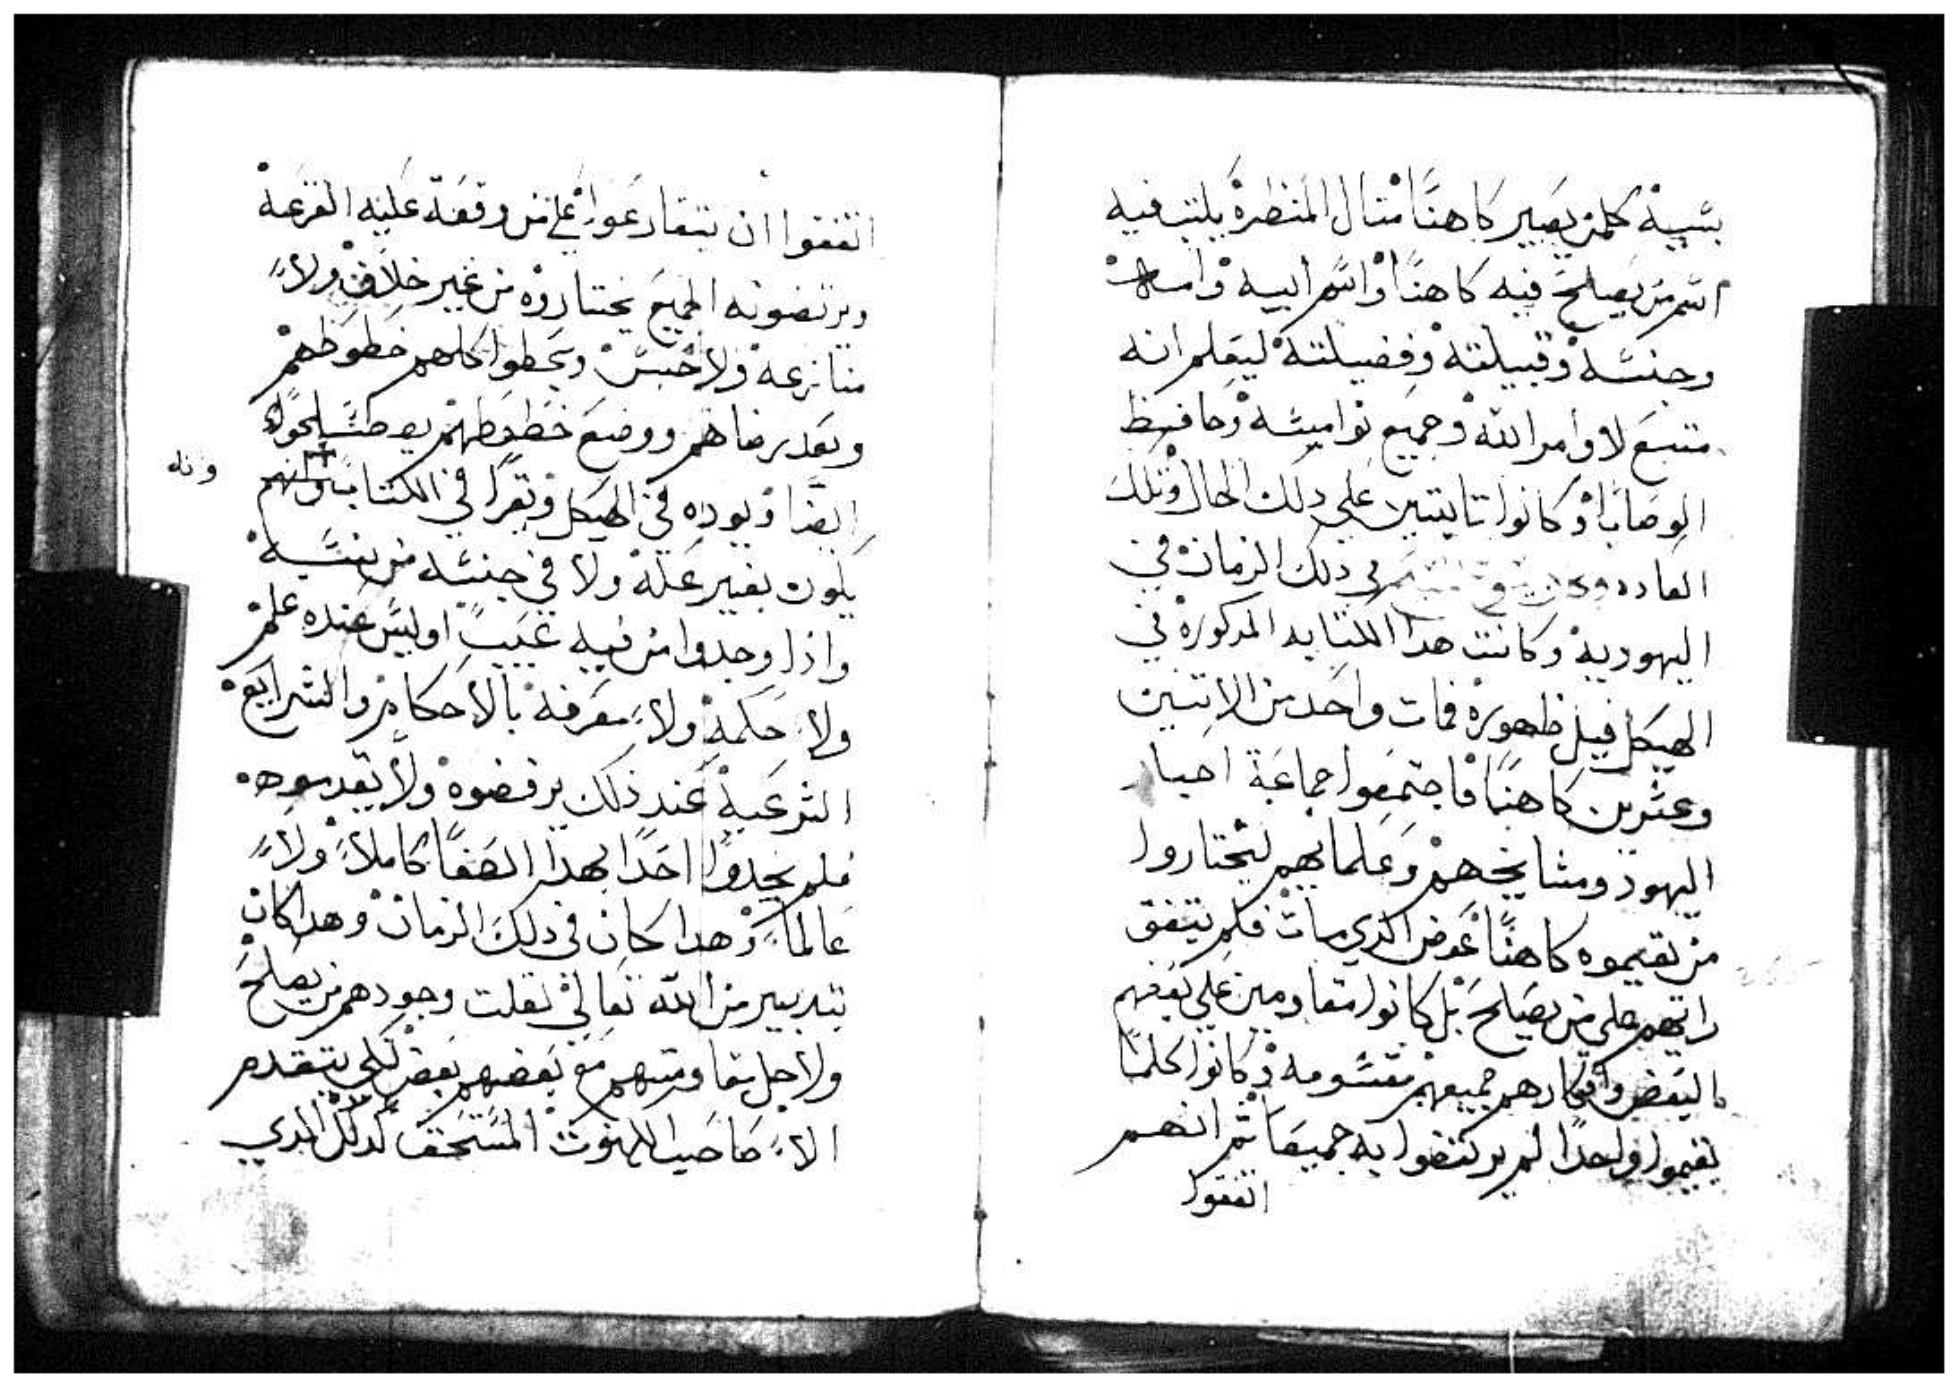 بشبه كلمن يصير كاهنًا مثال المنظرة يكتب فيه
اسم من يصلح فيه كاهنًا واسم ابيه وامـه
وجنسه وقبيلته وفضيلته ليعلم انه
متبع لاوامر الله وجميع نواميسه وحافظ
الوصايا وكانوا تابتين علي دلك الحال وتلك
العاده في دلك الزمان في
اليهودية وكانت هدا الكتابه المدكورة في
الهيكل قبل ظهوره فمات واحد من الاتنين
وعشرين كاهنًا فاجتمعوا جماعة احبار
اليهود ومشايخهم وعلمايهم ليختاروا
من يقيموه كاهنًا عوض الدي مات فلم يتفق
رايهم علي من يصلح بل كانوا مقاومين علي بعضهم
البعض وافكارهم جميعهم مقسومه وكانوا كلما
يقيموا واحدًا لم يرتضوا به جميعا ثم انهم
اتفقوا
اتفقوا ان يتقارعوا علي من وقعة عليه القرعة
ويرتضونه الجميع يختاروه من غير خلاف ولا
منازعة ولا حبس ويحطوا كلهم خطوطهم
وبعد رضاهم ووضع خطوطهم يصطلحوا
ايضا ويودوه في الهيكل ويقرا في الكتاب وانهم
وله
يكون بغير علة ولا في جنسه من نسبه
واذا وجدوا من فيه عيب اوليس عنده علم
ولا حكمة ولا معرفة بالاحكام والشرايع
الشرعية عند ذلك يرفضوه ولا يقدموه
فلم يجدوا احدًا بهدا الصفا كاملا ولا
عالماً وهدا كان في دلك الزمان وهدا كان
بتدبير من الله تعالي لقلت وجودهم من يصلح
ولاجل مقاومتهم مع بعضهم بعض لكي يتقدم
الا صاحب الكهنوت المستحق لدلك الدي